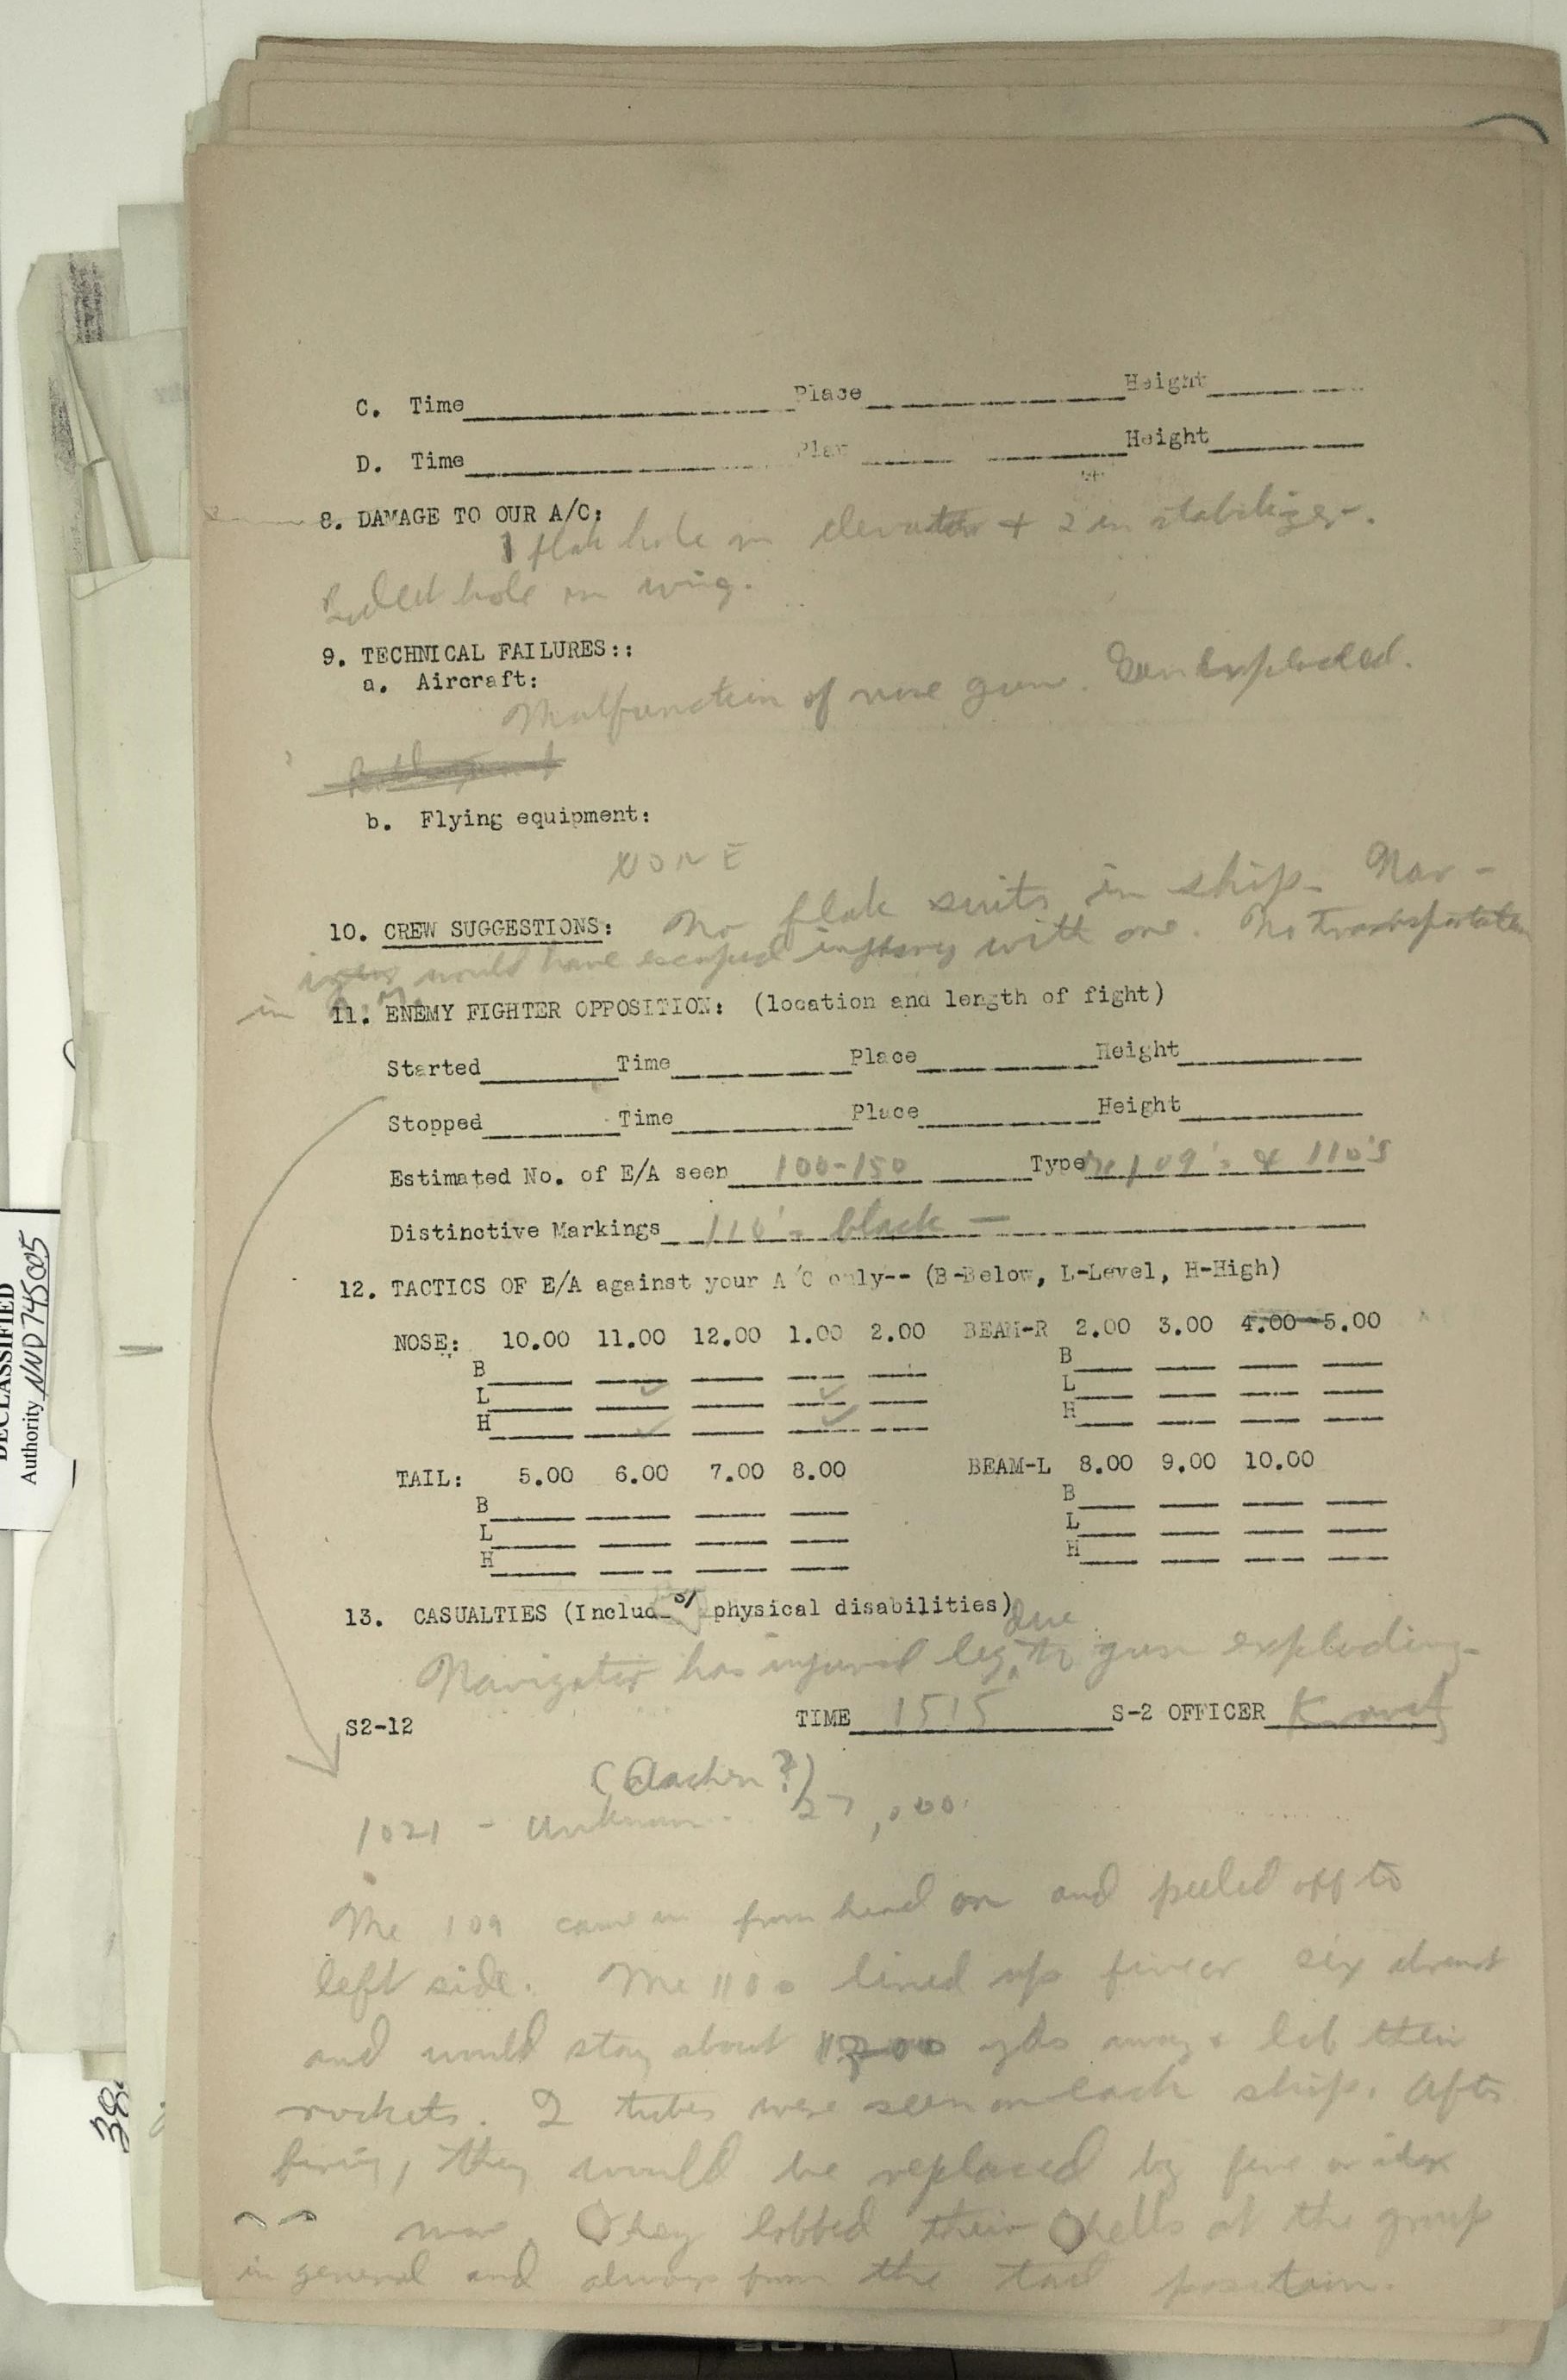 C. Time Place Height
D. Time Height
8. DAMAGE TO OUR A/C:
1 flak hole in elevator + 2 in stabilizer.
Bullet hole in wing.
9. TECHNICAL FAILURES::
a. Aircraft:
Malfunction of nose gun. Gun exploded.
b. Flying equipment:
NONE
10. CREW SUGGESTIONS: No flak suits in ship. Nav-
would have escaped injury with one. No transportation
in
11. ENEMY FIGHTER OPPOSITION: (location and length of fight)
Started Time Place Height
Stopped Time Place Height
Estimated No. of E/A seen 100-150 Type Me 109's & 110's
Distinctive Markings 110's black —
12. TACTICS OF E/A against your A/C only-- (B-Below, L-Level, H-High)
NOSE: 10.00 11.00 12.00 1.00 2.00 BEAM-R 2.00 3.00 4.00 5.00
B B
L ✓ ✓ L
H ✓ ✓ H
TAIL: 5.00 6.00 7.00 8.00 BEAM-L 8.00 9.00 10.00
B B
L L
H H
13. CASUALTIES (Includ physical disabilities)
Navigator has injured leg due to gun exploding-
S2-12 TIME 1515 S-2 OFFICER
(Aachen?)
1021 - Unknown. 27,000.
Me 109 came in from head on and peeled off to
left side. Me 110s lined up five or six abreast
and would stay about yds away & lob their
rockets. 2 tubes were seen on each ship. After
firing, they would be replaced by five or six
more. They lobbed their shells at the group
in general and always from the tail position.
DECLASSIFIED
Authority NND 745005
38